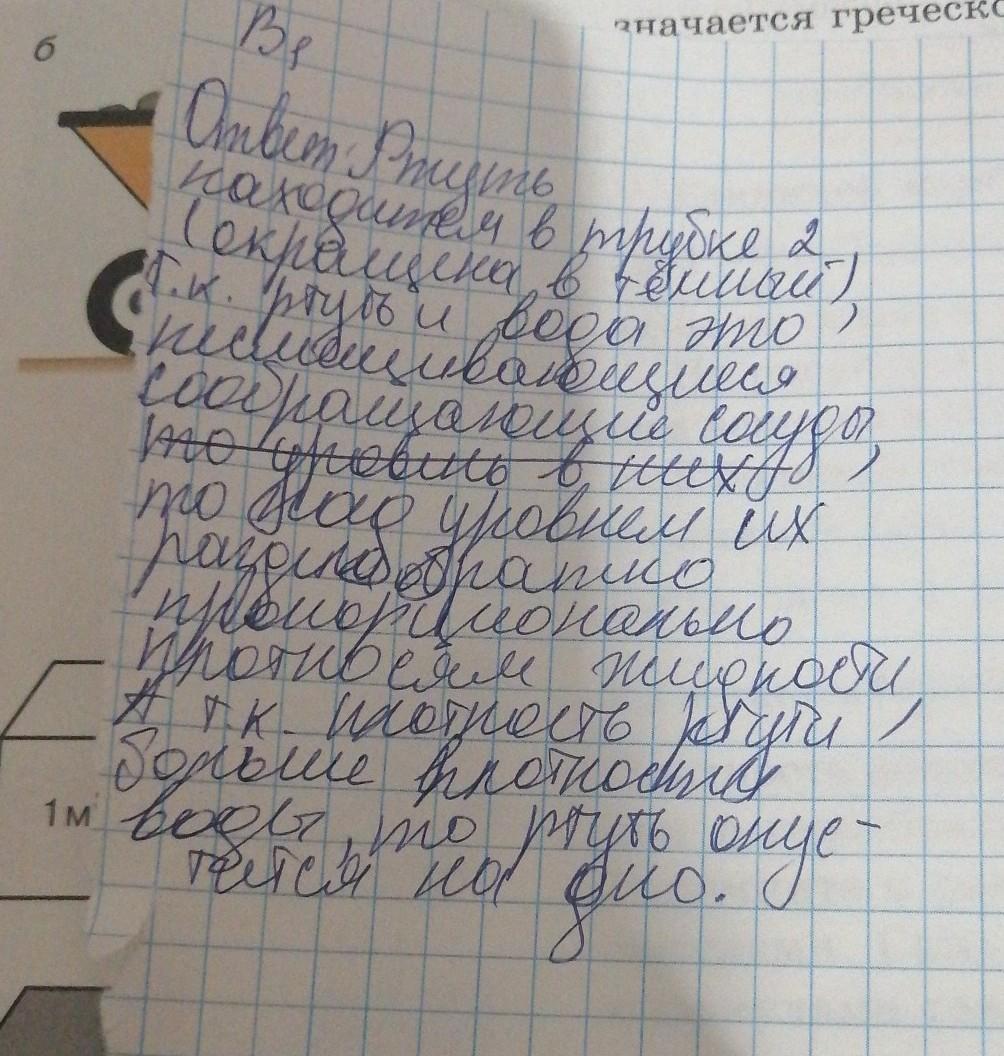 значается греческо
б
В1
Ответ: Ртуть
находится в трубке 2
(окрашена в тёмный),
т.к. ртуть и вода это
несмешивающиеся
сообращающие сосуды,
то уровень в них
то над уровнем их
раздела обратно
пропорционально
плотностям жидкости
А т.к. плотность ртути,
больше плотности
воды, то ртуть опус-
тится на дно.
1м